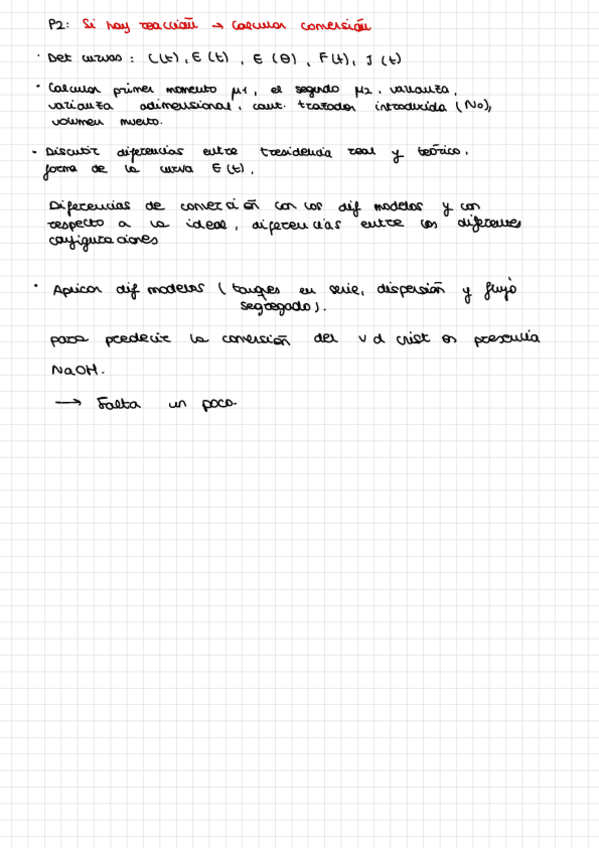 P2: Si hay reacción → Calcular conversión
· Det curvas: C(t), E(t), E(θ), F(t), J(t)
· Calcular primer momento μ1, el segundo μ2, varianza,
varianza adimensional, cant. trazador introducida (No),
volumen muerto.
· Discutir diferencias entre tresidencia real y teórico.
forma de la curva E(t).
Diferencias de conversión con los dif modelos y con
respecto a la ideal, diferencias entre las diferentes
configuraciones
· Aplicar dif modelos (tanques en serie, dispersión y flujo
segregado).
para predecir la conversión del v d crist en presencia
NaOH.
→ Falta un poco.